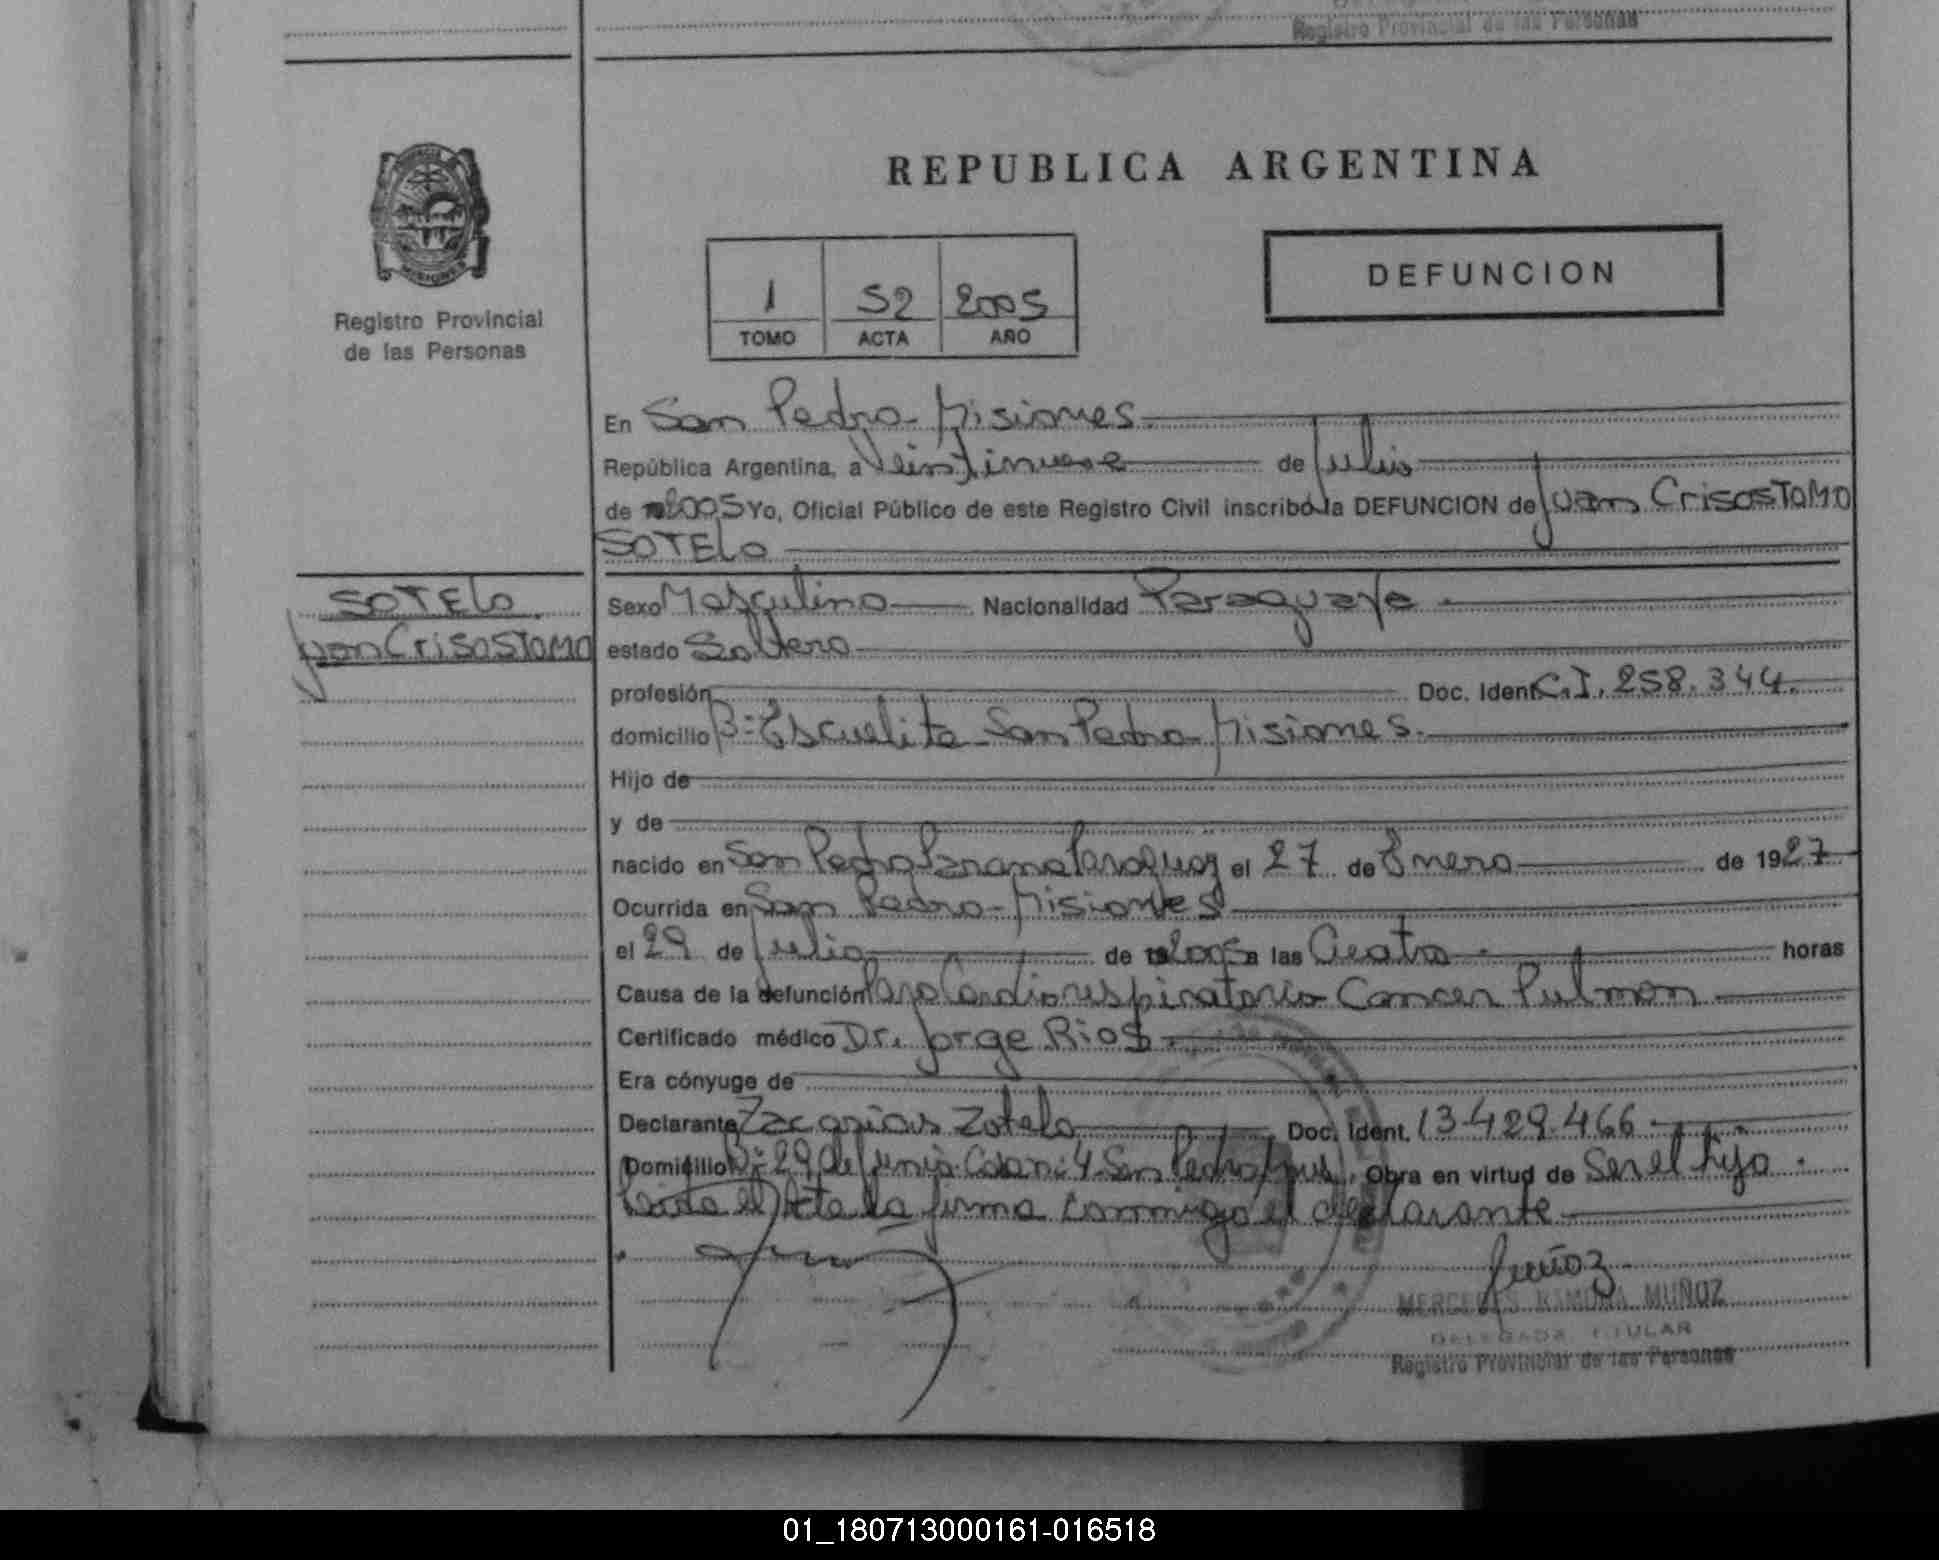 Registro Provincial de las Personas
REPUBLICA ARGENTINA
MISIONES
Registro Provincial
de las Personas
1 S2 2005
TOMO ACTA AÑO
DEFUNCION
En San Pedro- Misiones.
República Argentina, a Veintinueve de Julio
de 2005 Yo, Oficial Público de este Registro Civil inscribo la DEFUNCION de Juan CrisosTOMO
SOTELO
SOTELO
Juan CrisosTOMO
Sexo Masculino Nacionalidad Paraguaya
estado Soltero
profesión Doc. Ident. C.I. 258.344.
domicilio B: Escuelita San Pedro- Misiones.
Hijo de
y de
nacido en San Pedro Parana Paraguay el 27 de Enero de 1927
Ocurrida en San Pedro- Misiones
el 29 de Julio de 2005 a las Cuatro horas
Causa de la defunción Paro Cardio respiratorio Cancer Pulmon
Certificado médico Dr. Jorge Rios
Era cónyuge de
Declarante Zacarias Zotelo Doc. Ident. 13-429-466
Domicilio B: 29 de Junio Casa n: 4 San Pedro Mnes. Obra en virtud de Ser el hijo.
Leida el Acta la firma conmigo el declarante
Muñoz
MERCEDES RAMONA MUÑOZ
DELEGADA TITULAR
Registro Provincial de las Personas
01_180713000161-016518